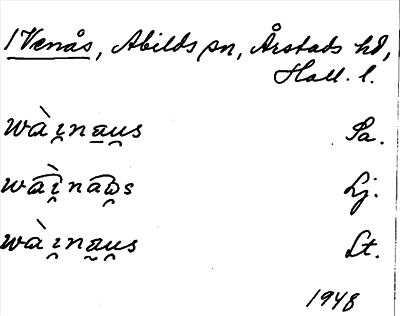 1 Venås, Abilds sn, Årstads hd,
Hall. l.
wà̀i̯na̱u̯s Pa.
wài̯nao̯s Lj.
wàı̯na̯u̯s Lt.
1948